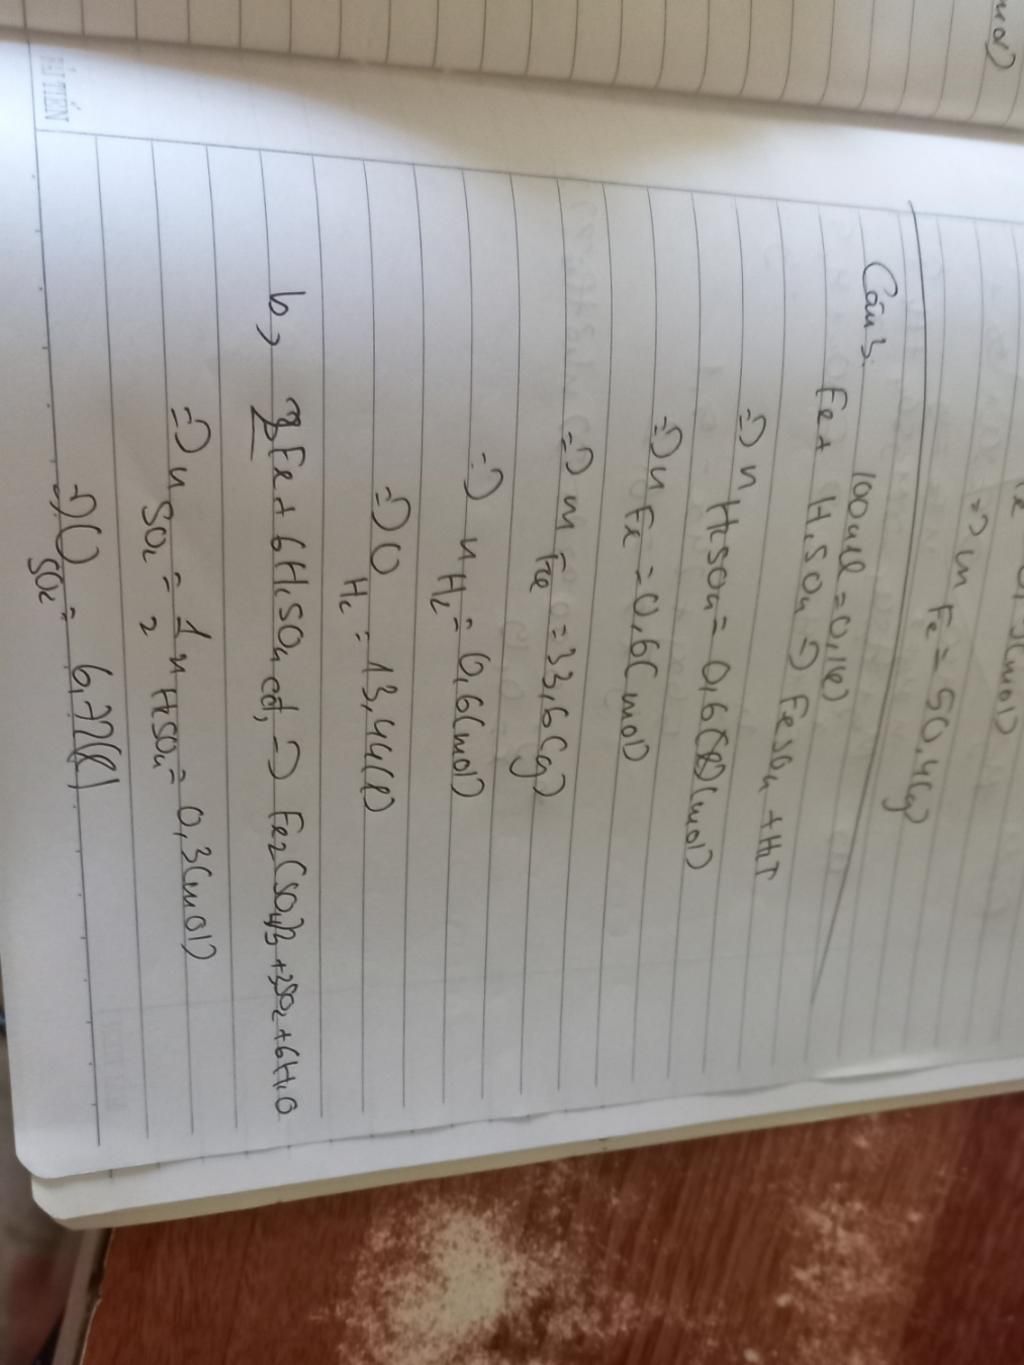 => m Fe = 50,4(g)
Câu 3.
100ml = 0,1(l)
Fe + H2SO4 => FeSO4 + H2↑
=> n H2SO4 = 0,6 (mol)
=> n Fe = 0,6(mol)
=> m Fe = 33,6(g)
=> n H2 = 0,6(mol)
=> V H2 = 13,44(l)
b, 2Fe + 6H2SO4 đ, => Fe2(SO4)3 + 3SO2 + 6H2O
=> n SO2 = 1/2 n H2SO4 = 0,3(mol)
=> V SO2 = 6,72(l)